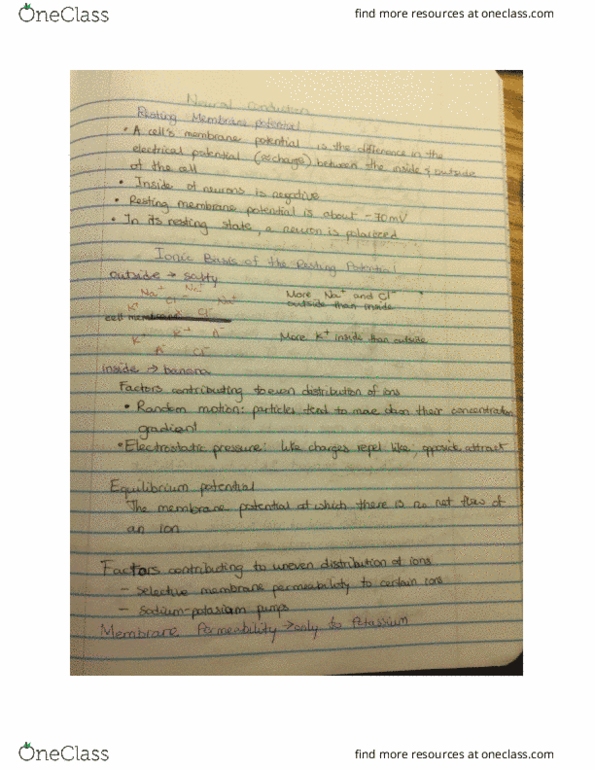 OneClass
find more resources at oneclass.com
Neural Conduction
Resting Membrane potential
• A cell's membrane potential is the difference in the
electrical potential (or charge) between the inside & outside
of the cell
• Inside of neurons is negative
• Resting membrane potential is about -70mV
• In its resting state, a neuron is polarized
Ionic Basis of the Resting Potential
outside → salty
Na+ Na+ Cl- Na+
More Na+ and Cl-
outside than inside
K+ Cl-
cell membrane
K+ K+ A-
More K+ inside than outside
A- Cl-
inside → banana
Factors contributing to even distribution of ions
• Random motion: particles tend to move down their concentration
gradient
• Electrostatic pressure: like charges repel like, opposite attract
Equilibrium potential
The membrane potential at which there is no net flow of
an ion
Factors contributing to uneven distribution of ions
- Selective membrane permeability to certain ions
- Sodium-potassium pumps
Membrane Permeability → only to Potassium
OneClass
find more resources at oneclass.com